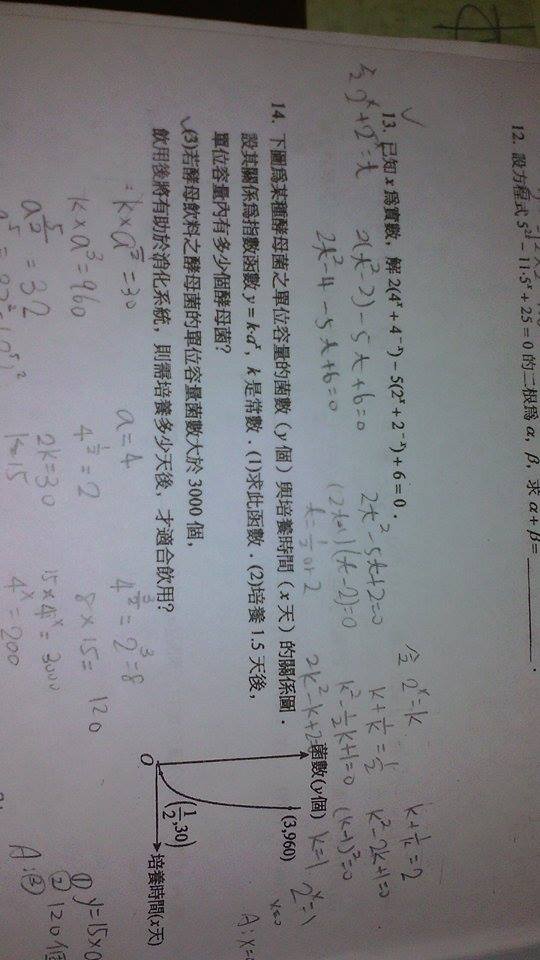 12. 設方程式 5²ˣ − 11·5ˣ + 25 = 0 的二根爲 α, β, 求 α + β = ________.
13. 已知 x 爲實數, 解 2(4ˣ + 4⁻ˣ) − 5(2ˣ + 2⁻ˣ) + 6 = 0.
2(t²−2)−5t+6=0
2t²−4−5t+6=0
2t²−5t+2=0
(t−2)=0
t=½ or 2
令 2ˣ=k
k+1/k=½
k²−½k+1=0
2k²−k+2=
k+1/k=2
k²−2k+1=0
(k−1)²=0
k=1
2ˣ=1
14. 下圖爲某種酵母菌之單位容量的菌數(y 個)與培養時間(x 天)的關係圖.
設其關係爲指數函數 y = k·aˣ, k 是常數. (1)求此函數. (2)培養 1.5 天後,
單位容量內有多少個酵母菌?
(3)若酵母飲料之酵母菌的單位容量菌數大於 3000 個,
飲用後將有助於消化系統, 則需培養多少天後, 才適合飲用?
菌數(y個)
(3,960)
(1/2,30)
O
培養時間(x天)
k×a^½=30
k×a³=960
a^(5/2)=32
a=4
4^½=2
2k=30
k=15
4^(3/2)=2³=8
8×15=120
15×4ˣ=3000
4ˣ=200
②120個